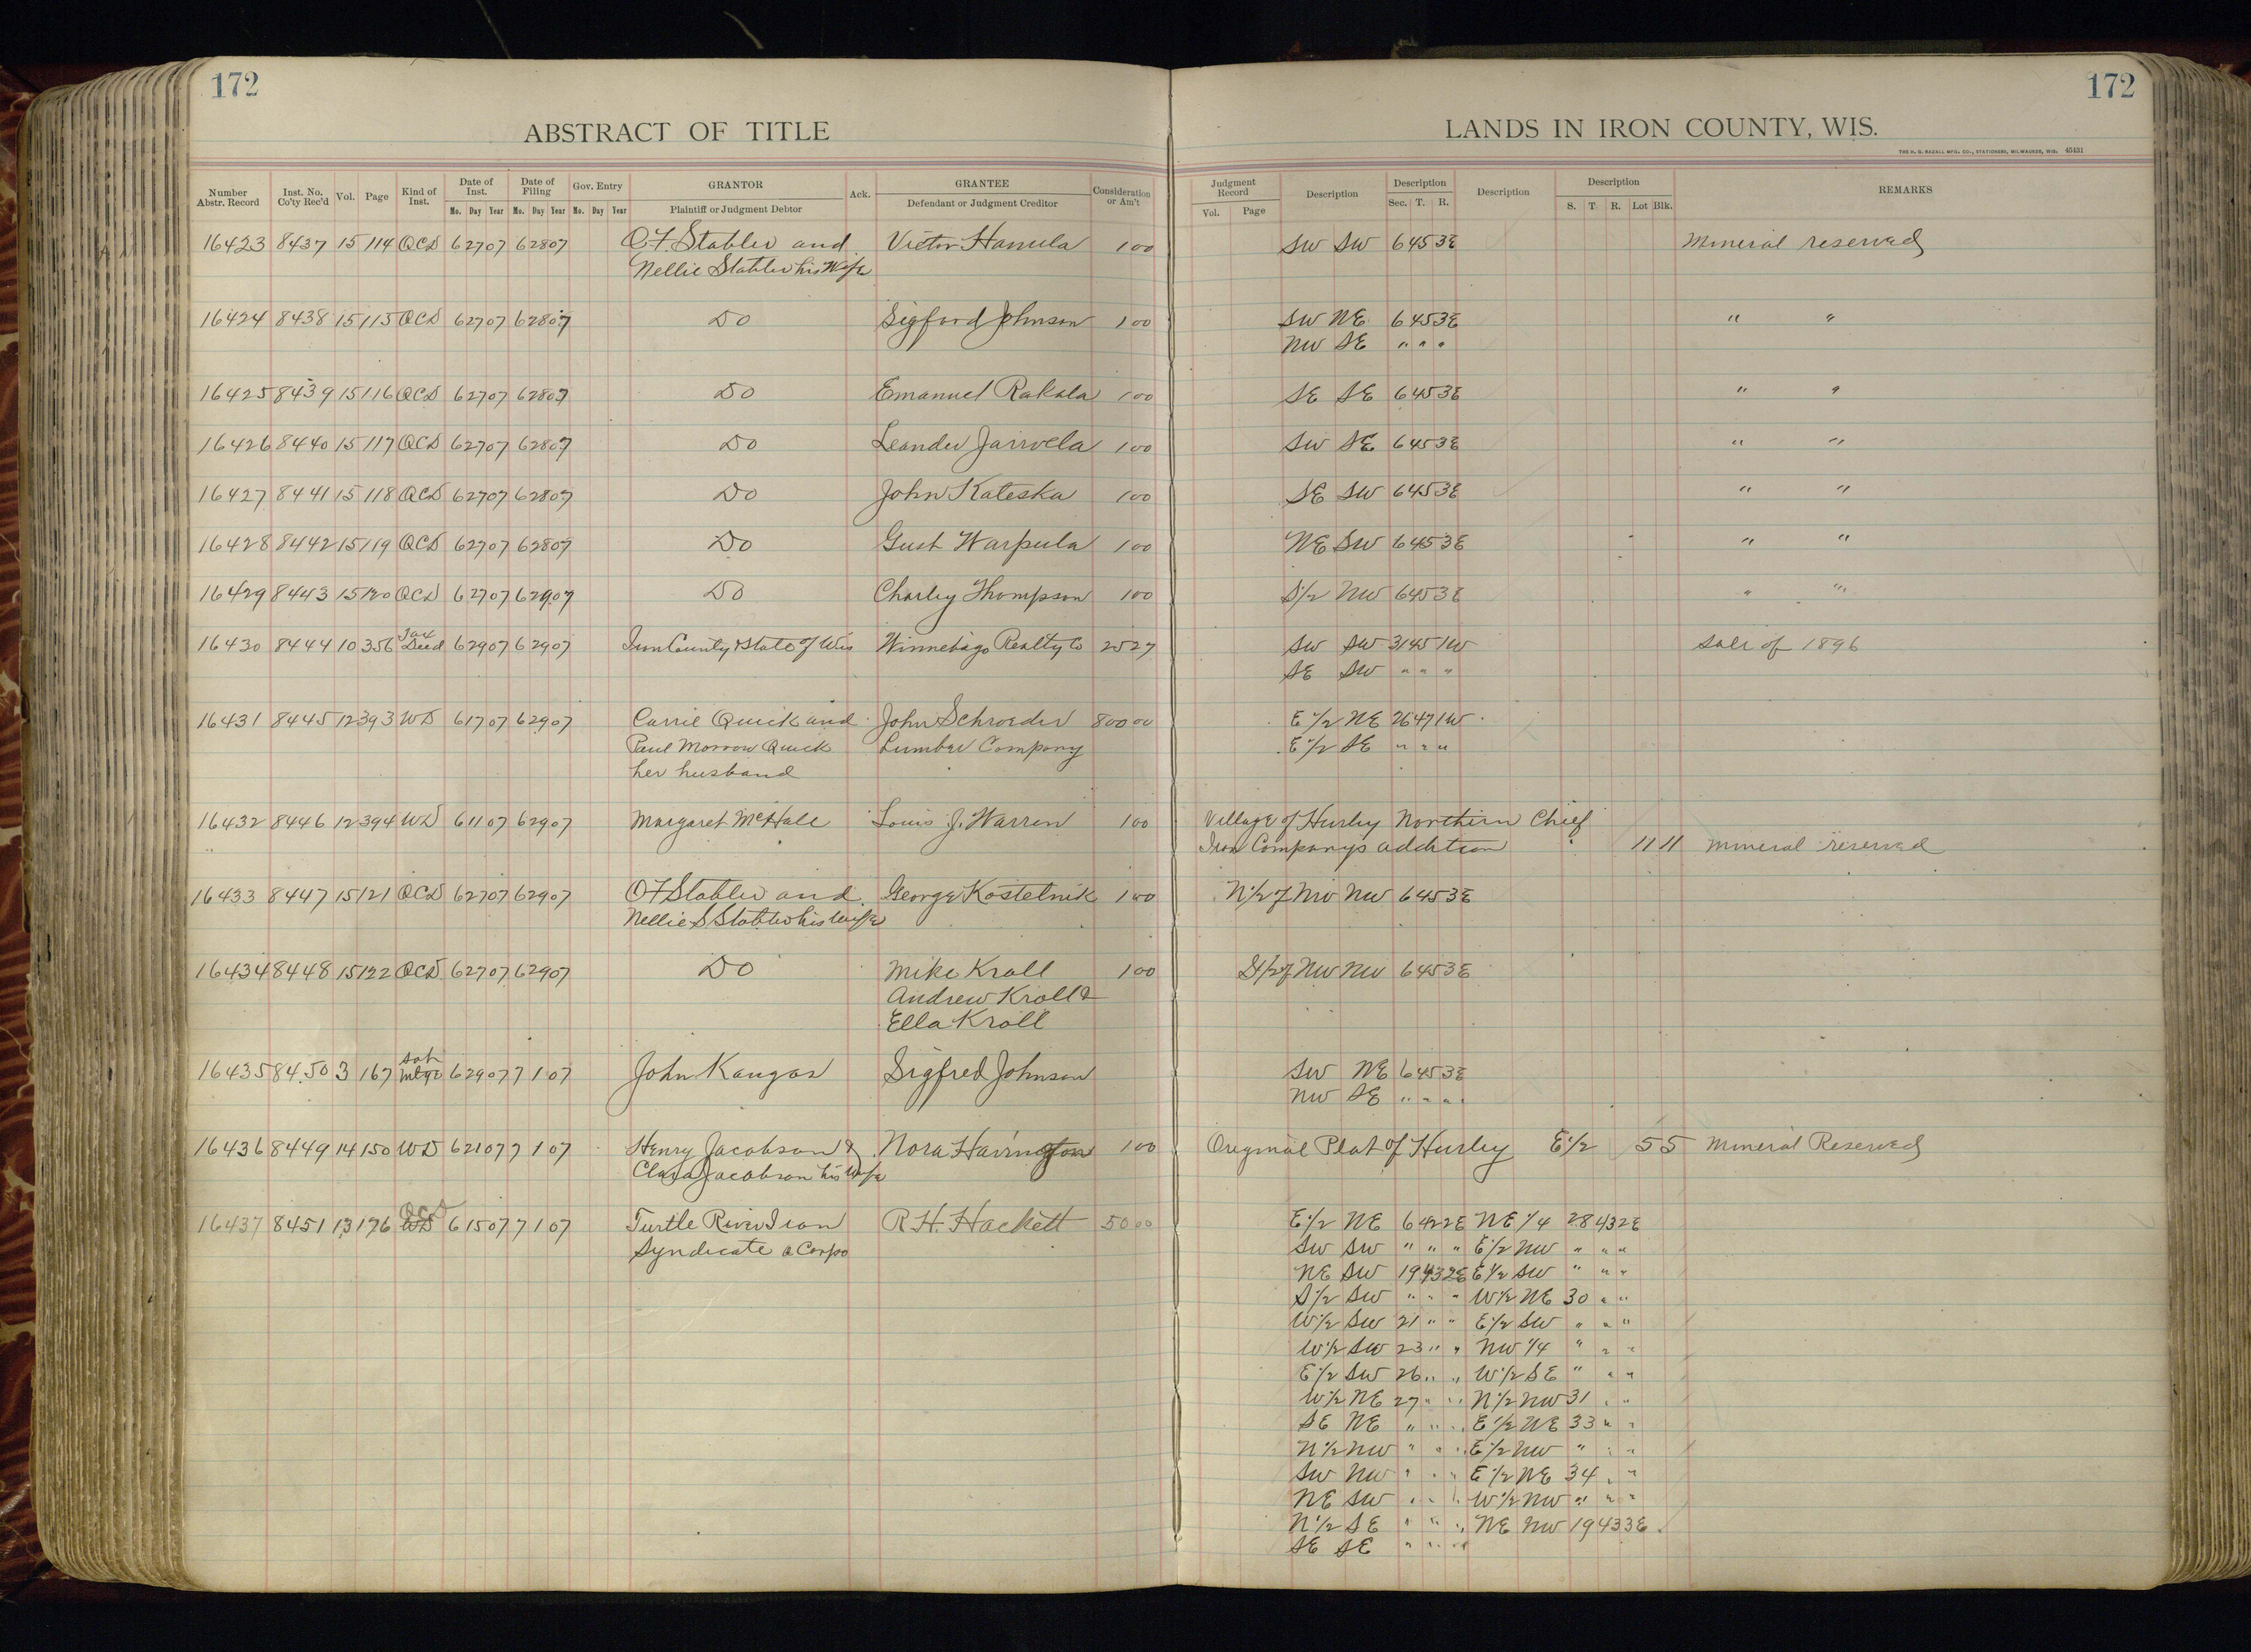 172
172
ABSTRACT OF TITLE
LANDS IN IRON COUNTY, WIS.
THE H. G. RAZALL MFG. CO., STATIONERS, MILWAUKEE, WIS. 45431
Number Abstr. Record
Inst. No. Co'ty Rec'd
Vol.
Page
Kind of Inst.
Date of Inst.
Mo. Day Year
Date of Filing
Mo. Day Year
Gov. Entry
Mo. Day Year
GRANTOR
Plaintiff or Judgment Debtor
Ack.
GRANTEE
Defendant or Judgment Creditor
Consideration or Am't
Judgment Record
Vol. Page
Description
Description
Sec. T. R.
Description
Description
S. T. R. Lot Blk.
REMARKS
16423 8437 15 114 QCD 6 27 07 6 28 07 O F. Stabler and Victor Hanula 1 00 SW SW 6 45 3E Mineral reserved
Nellie Stabler his Wife
16424 8438 15 115 QCD 6 27 07 6 28 07 Do Sigford Johnson 1 00 SW NE 6 45 3E " "
NW SE " " "
16425 8439 15 116 QCD 6 27 07 6 28 07 Do Emanuel Rakala 1 00 SE SE 6 45 3E " "
16426 8440 15 117 QCD 6 27 07 6 28 07 Do Leander Jarrvela 1 00 SW SE 6 45 3E " "
16427 8441 15 118 QCD 6 27 07 6 28 07 Do John Kateska 1 00 SE SW 6 45 3E " "
16428 8442 15 119 QCD 6 27 07 6 28 07 Do Gust Warpula 1 00 NE SW 6 45 3E " "
16429 8443 15 120 QCD 6 27 07 6 29 07 Do Charley Thompson 1 00 S1/2 NW 6 45 3E " "
16430 8444 10 356 Tax Deed 6 29 07 6 29 07 Iron County & State of Wis Winnebago Realty Co 25 27 SW SW 31 45 1W Sale of 1896
SE SW " " "
16431 8445 12 393 WD 6 17 07 6 29 07 Carrie Quick and John Schroeder 800 00 E 1/2 NE 26 47 1W
Paul Morrow Quick Lumber Company E 1/2 SE " " "
her husband
16432 8446 12 394 WD 6 11 07 6 29 07 Margaret McHale Louis J. Warren 1 00 Village of Hurley Northern Chief
Iron Company's addition 11 11 mineral reserved
16433 8447 15 121 QCD 6 27 07 6 29 07 O F Stabler and George Kostelnik 1 00 N1/2 of NW NW 6 45 3E
Nellie S Stabler his wife
16434 8448 15 122 QCD 6 27 07 6 29 07 Do Mike Kroll 1 00 S1/2 of NW NW 6 45 3E
Andrew Kroll &
Ella Kroll
16435 8450 3 167 Sat Mtge 6 29 07 7 1 07 John Kangas Sigfred Johnson SW NE 6 45 3E
NW SE " " "
16436 8449 14 150 WD 6 21 07 7 1 07 Henry Jacobson & Nora Harrington 1 00 Original Plat of Hurley E1/2 5 5 Mineral Reserved
Clara Jacobson his Wife
16437 8451 13 176 QCD WD 6 15 07 7 1 07 Turtle River Iron R. H. Hackett 50 00 E1/2 NE 6 42 2E NE 1/4 28 43 2E
Syndicate a Corpo SW SW " " " E1/2 NW " " "
NE SW 19 43 2E E1/2 SW " " "
S1/2 SW " " " W1/2 NE 30 " "
W1/2 SW 21 " " E1/2 SW " " "
W1/2 SW 23 " " NW 1/4 " " "
E1/2 SW 26 " " W1/2 SE " " "
W1/2 NE 27 " " N1/2 NW 31 " "
SE NE " " " E1/2 NE 33 " "
N1/2 NW " " " E1/2 NW " " "
SW NW " " " E1/2 NE 34 " "
NE SW " " " W1/2 NW " " "
N1/2 SE " " " NE NW 19 43 3E
SE SE " " "